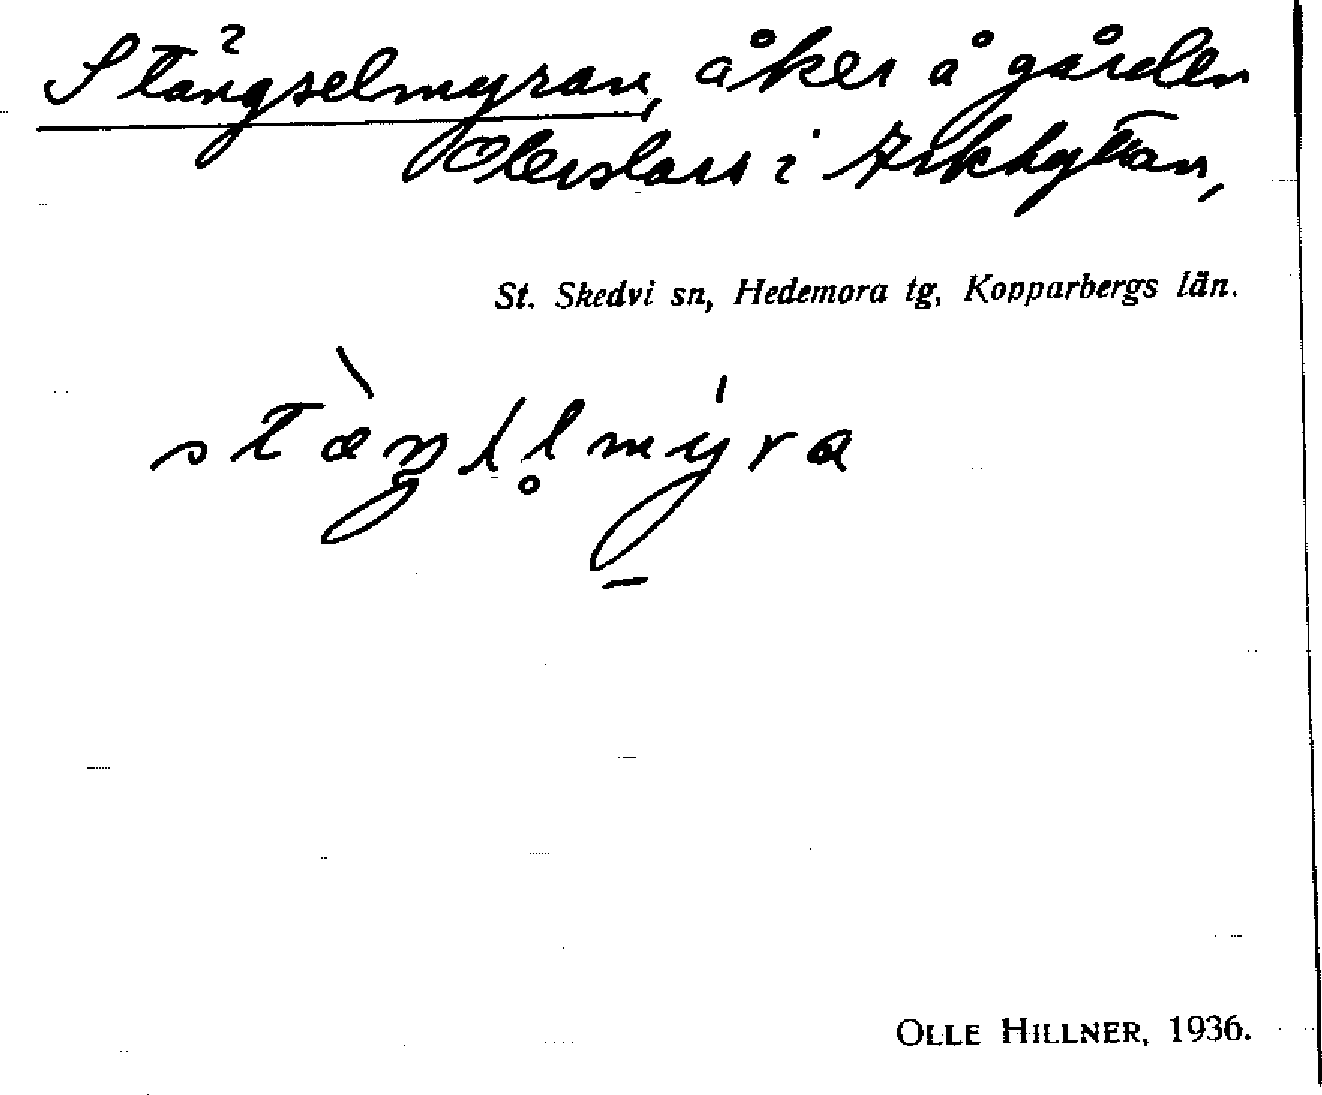 Stängselmyran, åker å gården
Olerslars i Arkhyttan,
St. Skedvi sn, Hedemora tg, Kopparbergs län.
OLLE HILLNER, 1936.